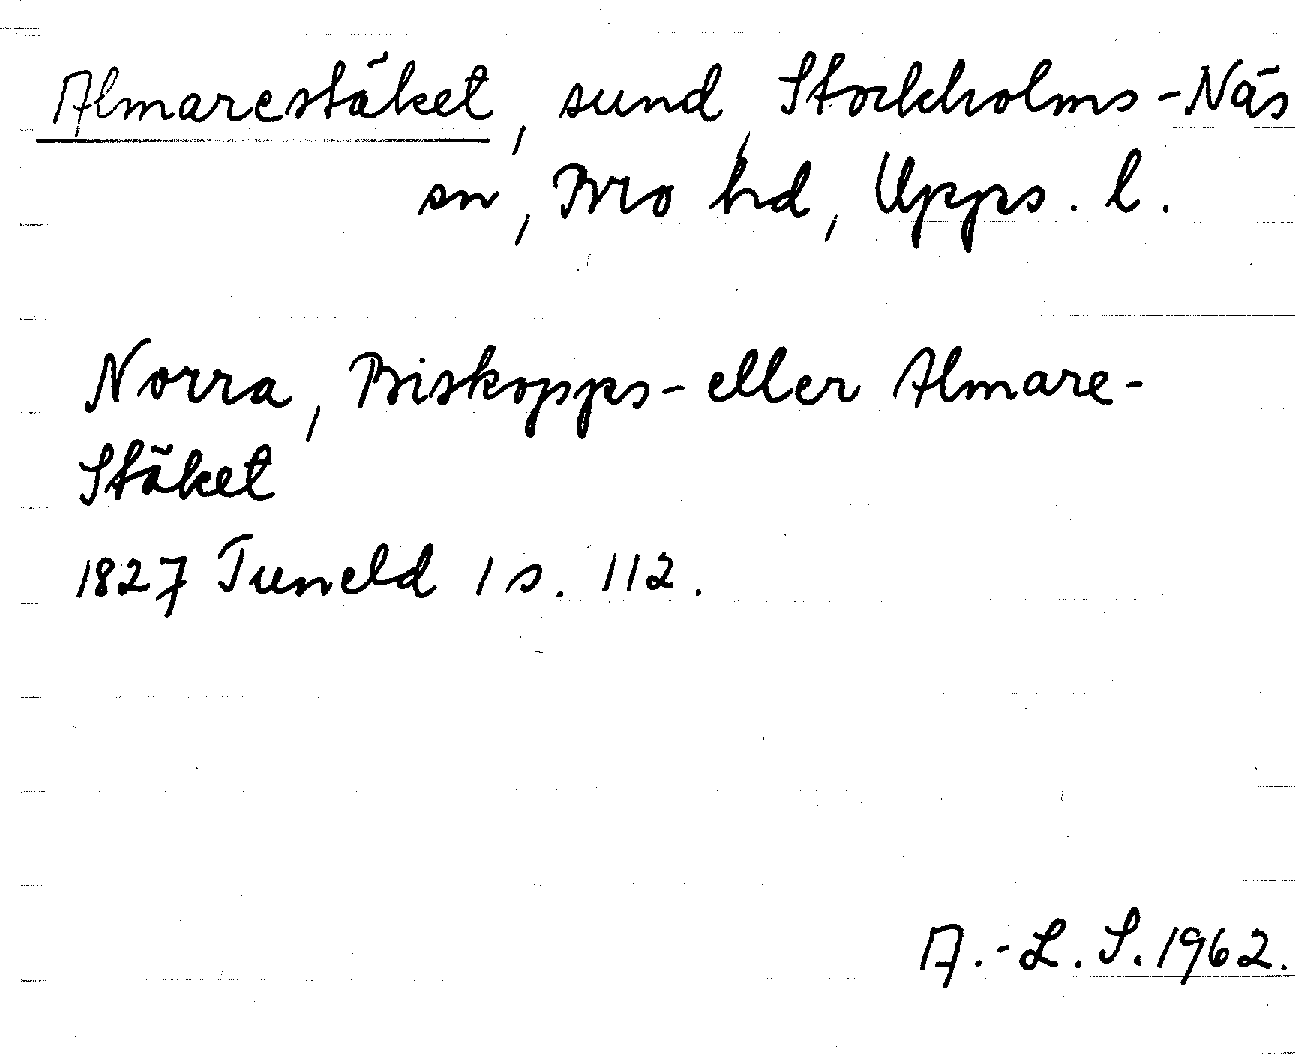 Almarestäket, sund, Stockholms-Näs
sn, Bro hd, Upps. l.
Norra, Biskopps- eller Almare-
Stäket
1827 Tuneld 1 s. 112.
A.-L. S. 1962.